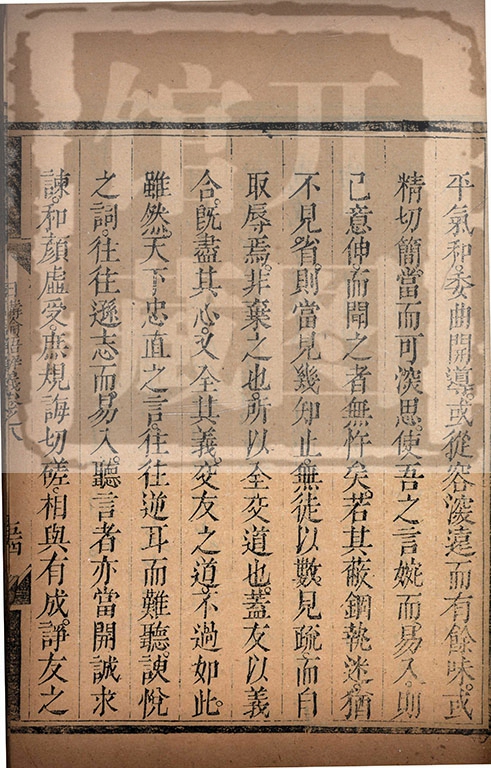 平氣和。委曲開導。或從容深遠而有餘味。或
精切簡當而可深思。使吾之言婉而易入。則
己意伸而聞之者無忤矣。若其蔽錮執迷。猶
不見省。則當見幾知止。無徒以數見疏而自
取辱焉。非棄之也。所以全交道也。蓋友以義
合。既盡其心。又全其義。交友之道。不過如此。
雖然。天下忠直之言。往往逆耳而難聽。諛悅
之詞。往往遜志而易入。聽言者亦當開誠求
諫。和顏虛受。庶規誨切磋。相與有成。諍友之
日講論語解義卷八